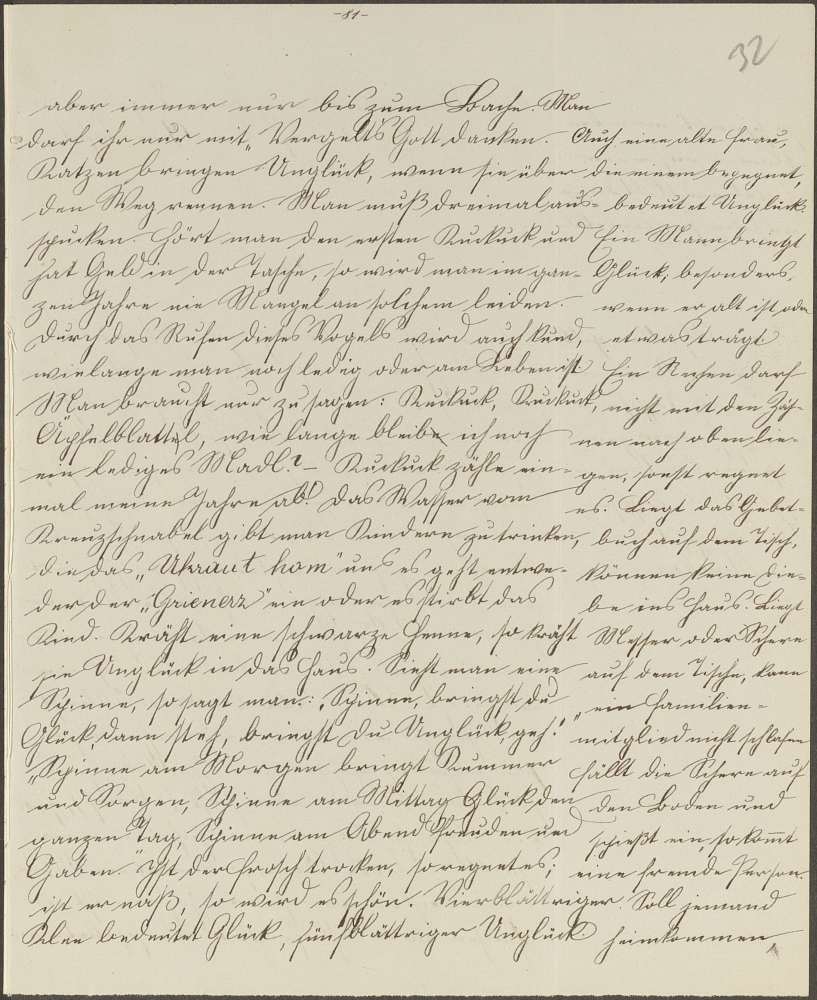 -81-
32
aber immer nur bis zum Bache. Man
darf ihr nur mit „Vergelts Gott danken.
Katzen bringen Unglück, wenn sie über
den Weg rennen. Man muß dreimal aus-
spucken. Hört man den ersten Kuckuck und
hat Geld in der Tasche, so wird man im gan-
zen Jahre nie Mangel an solchem leiden.
Durch das Rufen dieses Vogels wird auch kund,
wielange man noch ledig oder am Leben ist
Man braucht nur zu sagen: Kuckuck, Kuckuck,
Äpfelblattel, wie lange bleibe ich noch
ein lediges Madl? – Kuckuck zähle ein-
mal meine Jahre ab! Das Wasser vom
Kreuzschnabel gibt man Kindern zu trinken,
die das „Ukraut hom" und es geht entwe-
der der „Grienerz" ein oder es stirbt das
Kind. Kräht eine schwarze Henne, so kräht
sie Unglück in das Haus. Sieht man eine
Spinne, so sagt man: „Spinne, bringst du
Glück, dann steh, bringst du Unglück, geh!"
„Spinne am Morgen bringt Kummer
und Sorgen, Spinne am Mittag Glück den
ganzen Tag, Spinne am Abend Freuden und
Gaben." Ist der Frosch trocken, so regnet es;
ist er naß, so wird es schön. Vierblättriger
Klee bedeutet Glück, fünfblättriger Unglück.
Auch eine alte Frau,
die einem begegnet,
bedeutet Unglück.
Ein Mann bringt
Glück, besonders,
wenn er alt ist oder
etwas trägt
Ein Rechen darf
nicht mit den Zäh-
nen nach oben lie-
gen, sonst regnet
es. Liegt das Gebet-
buch auf dem Tisch,
können keine Die-
be ins Haus. Liegt
Messer oder Schere
auf dem Tische, kann
ein Familien-
mitglied nicht schlafen
Fällt die Schere auf
den Boden und
schießt ein, so kommt
eine fremde Person.
Soll jemand
heimkommen